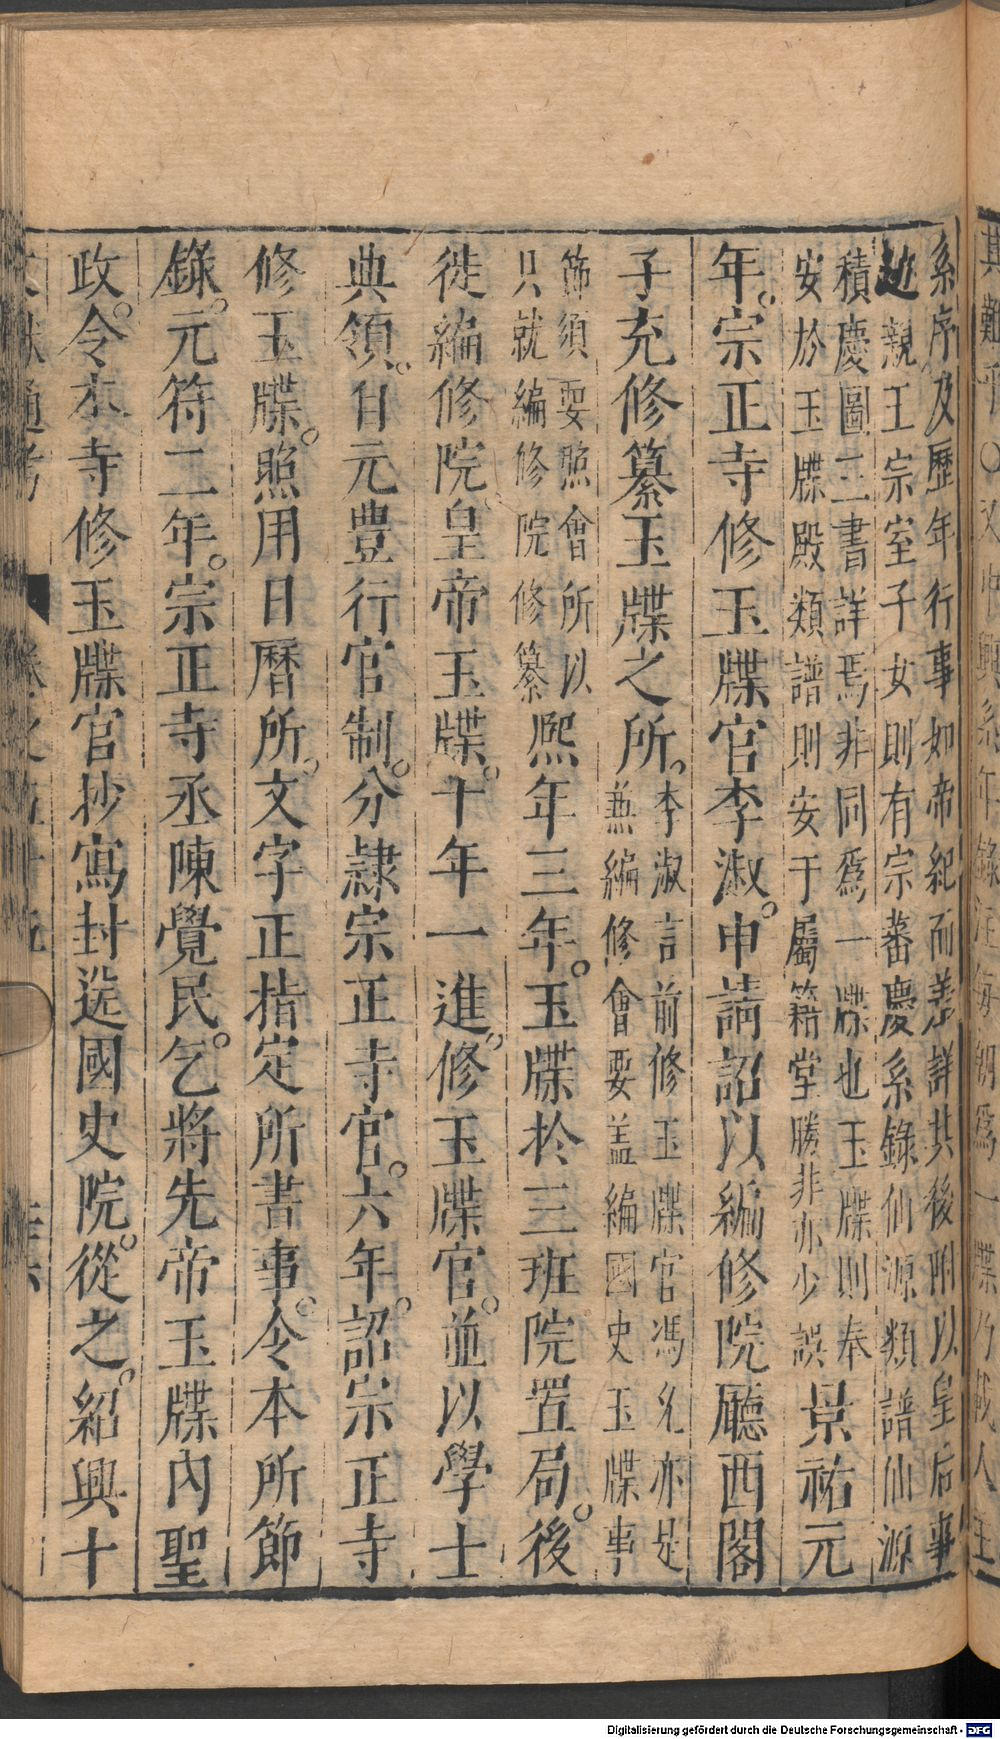 系序及歷年行事如帝紀而差詳其後附以皇后事
迹親王宗室子女則有宗蕃慶系錄仙源類譜仙源
積慶圖三書詳焉非同爲一牒也玉牒則奉
安於玉牒殿類譜則安于屬籍堂勝非亦少誤
景祐元
年宗正寺修玉牒官李淑申請詔以編修院廳西閣
子充修纂玉牒之所
李淑言前修玉牒官馮元亦是
兼編修會要盖編國史玉牒事
節須要照會所以
只就編修院修纂
熙年三年玉牒於三班院置局後
徙編修院皇帝玉牒十年一進修玉牒官並以學士
典領自元豊行官制分隷宗正寺官六年詔宗正寺
修玉牒照用日曆所文字正指定所書事令本所節
錄元符二年宗正寺丞陳覺民乞將先帝玉牒內聖
政令本寺修玉牒官抄寫封送國史院從之紹興十
通考
Digitalisierung gefördert durch die Deutsche Forschungsgemeinschaft - DFG